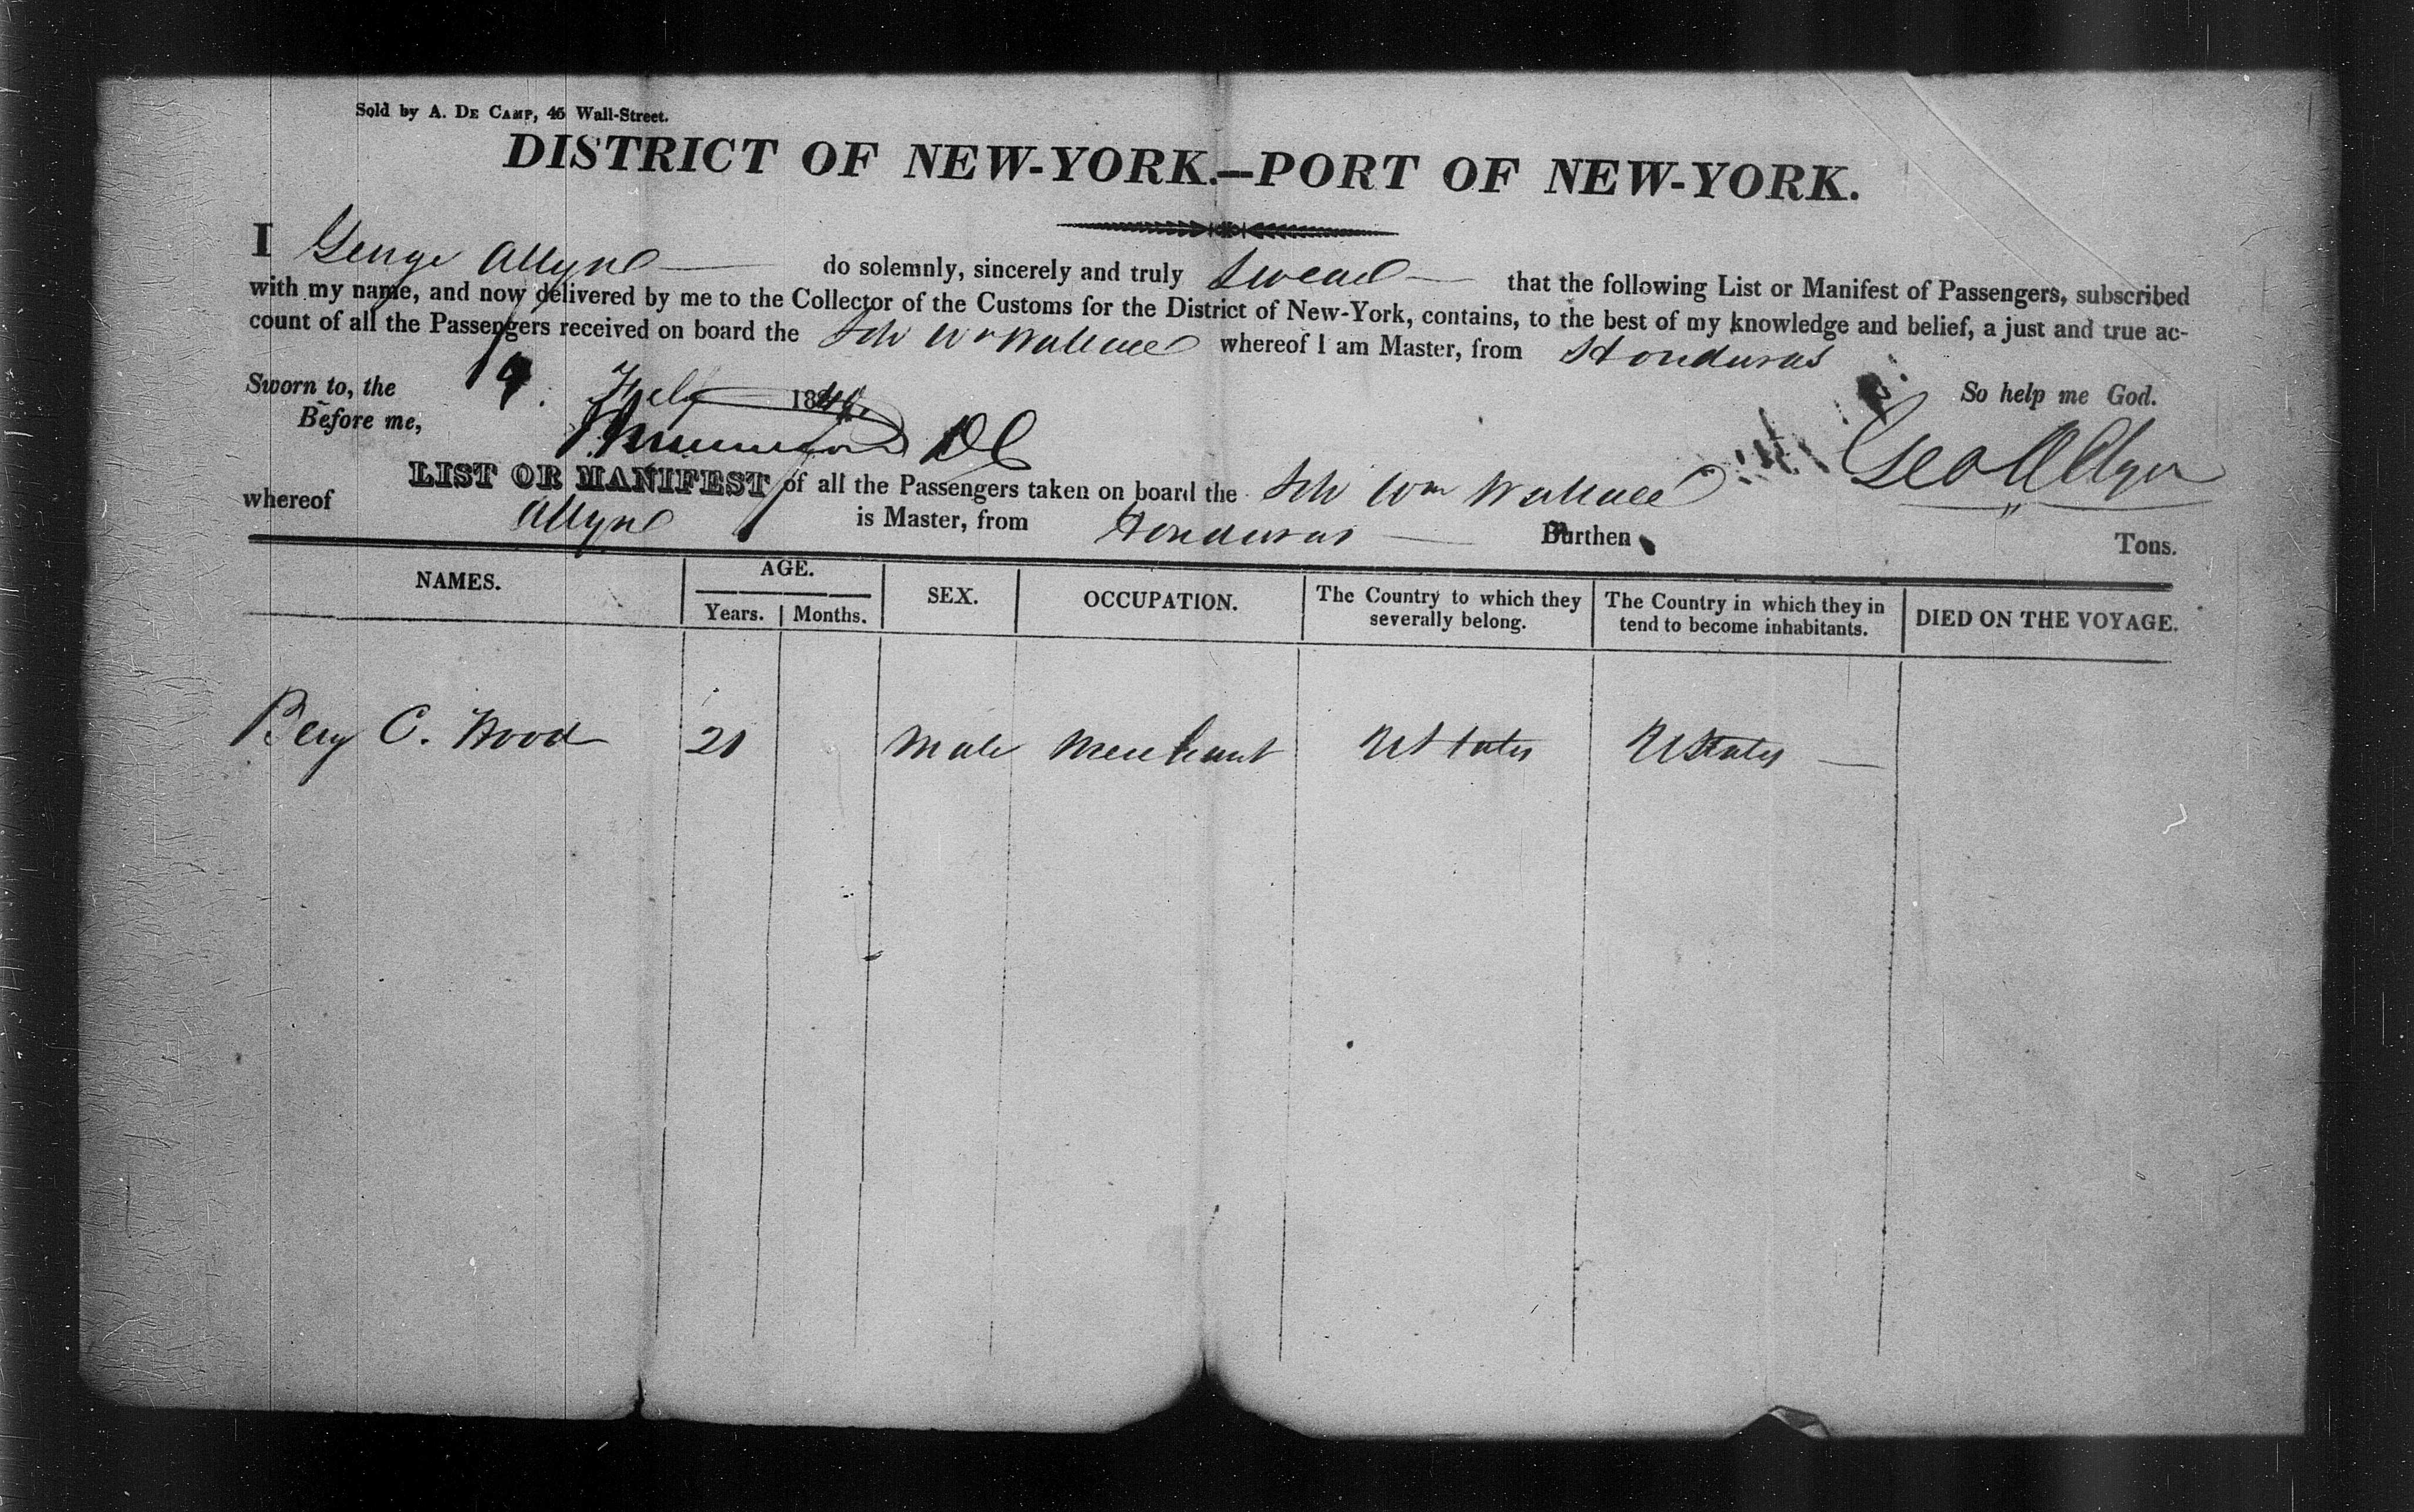 Sold by A. De Camp, 45 Wall-Street.
DISTRICT OF NEW-YORK.—PORT OF NEW-YORK.
I George Allyne do solemnly, sincerely and truly swear that the following List or Manifest of Passengers, subscribed
with my name, and now delivered by me to the Collector of the Customs for the District of New-York, contains, to the best of my knowledge and belief, a just and true ac-
count of all the Passengers received on board the Sch Wm Wallace whereof I am Master, from Honduras
Sworn to, the 19 Feby 1840. So help me God.
Before me, DC
Geo Allyn
LIST OR MANIFEST of all the Passengers taken on board the Sch Wm Wallace
whereof Allyne is Master, from Honduras Burthen Tons.
NAMES. AGE. SEX. OCCUPATION. The Country to which they severally belong. The Country in which they in tend to become inhabitants. DIED ON THE VOYAGE.
Years. Months.
Benj C. Wood 21 Male Merchant U States U States